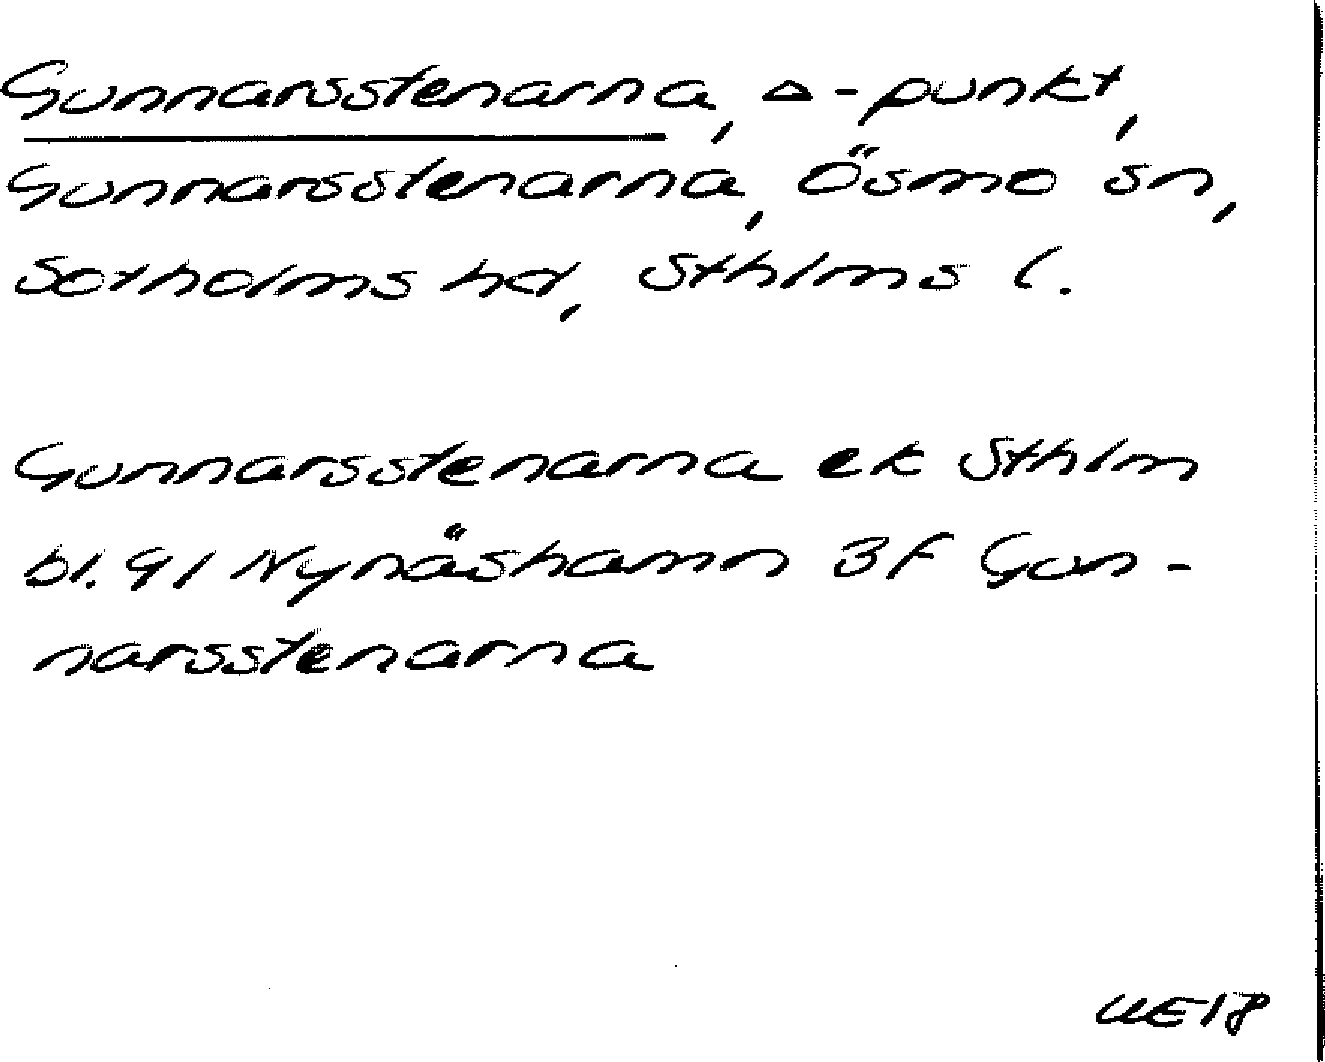 Gunnarsstenarna, △-punkt,
Gunnarsstenarna, Ösmo sn,
Sotholms hd, Sthlms l.
Gunnarsstenarna ek Sthlm
bl. 91 Nynäshamn 3f Gun-
narsstenarna